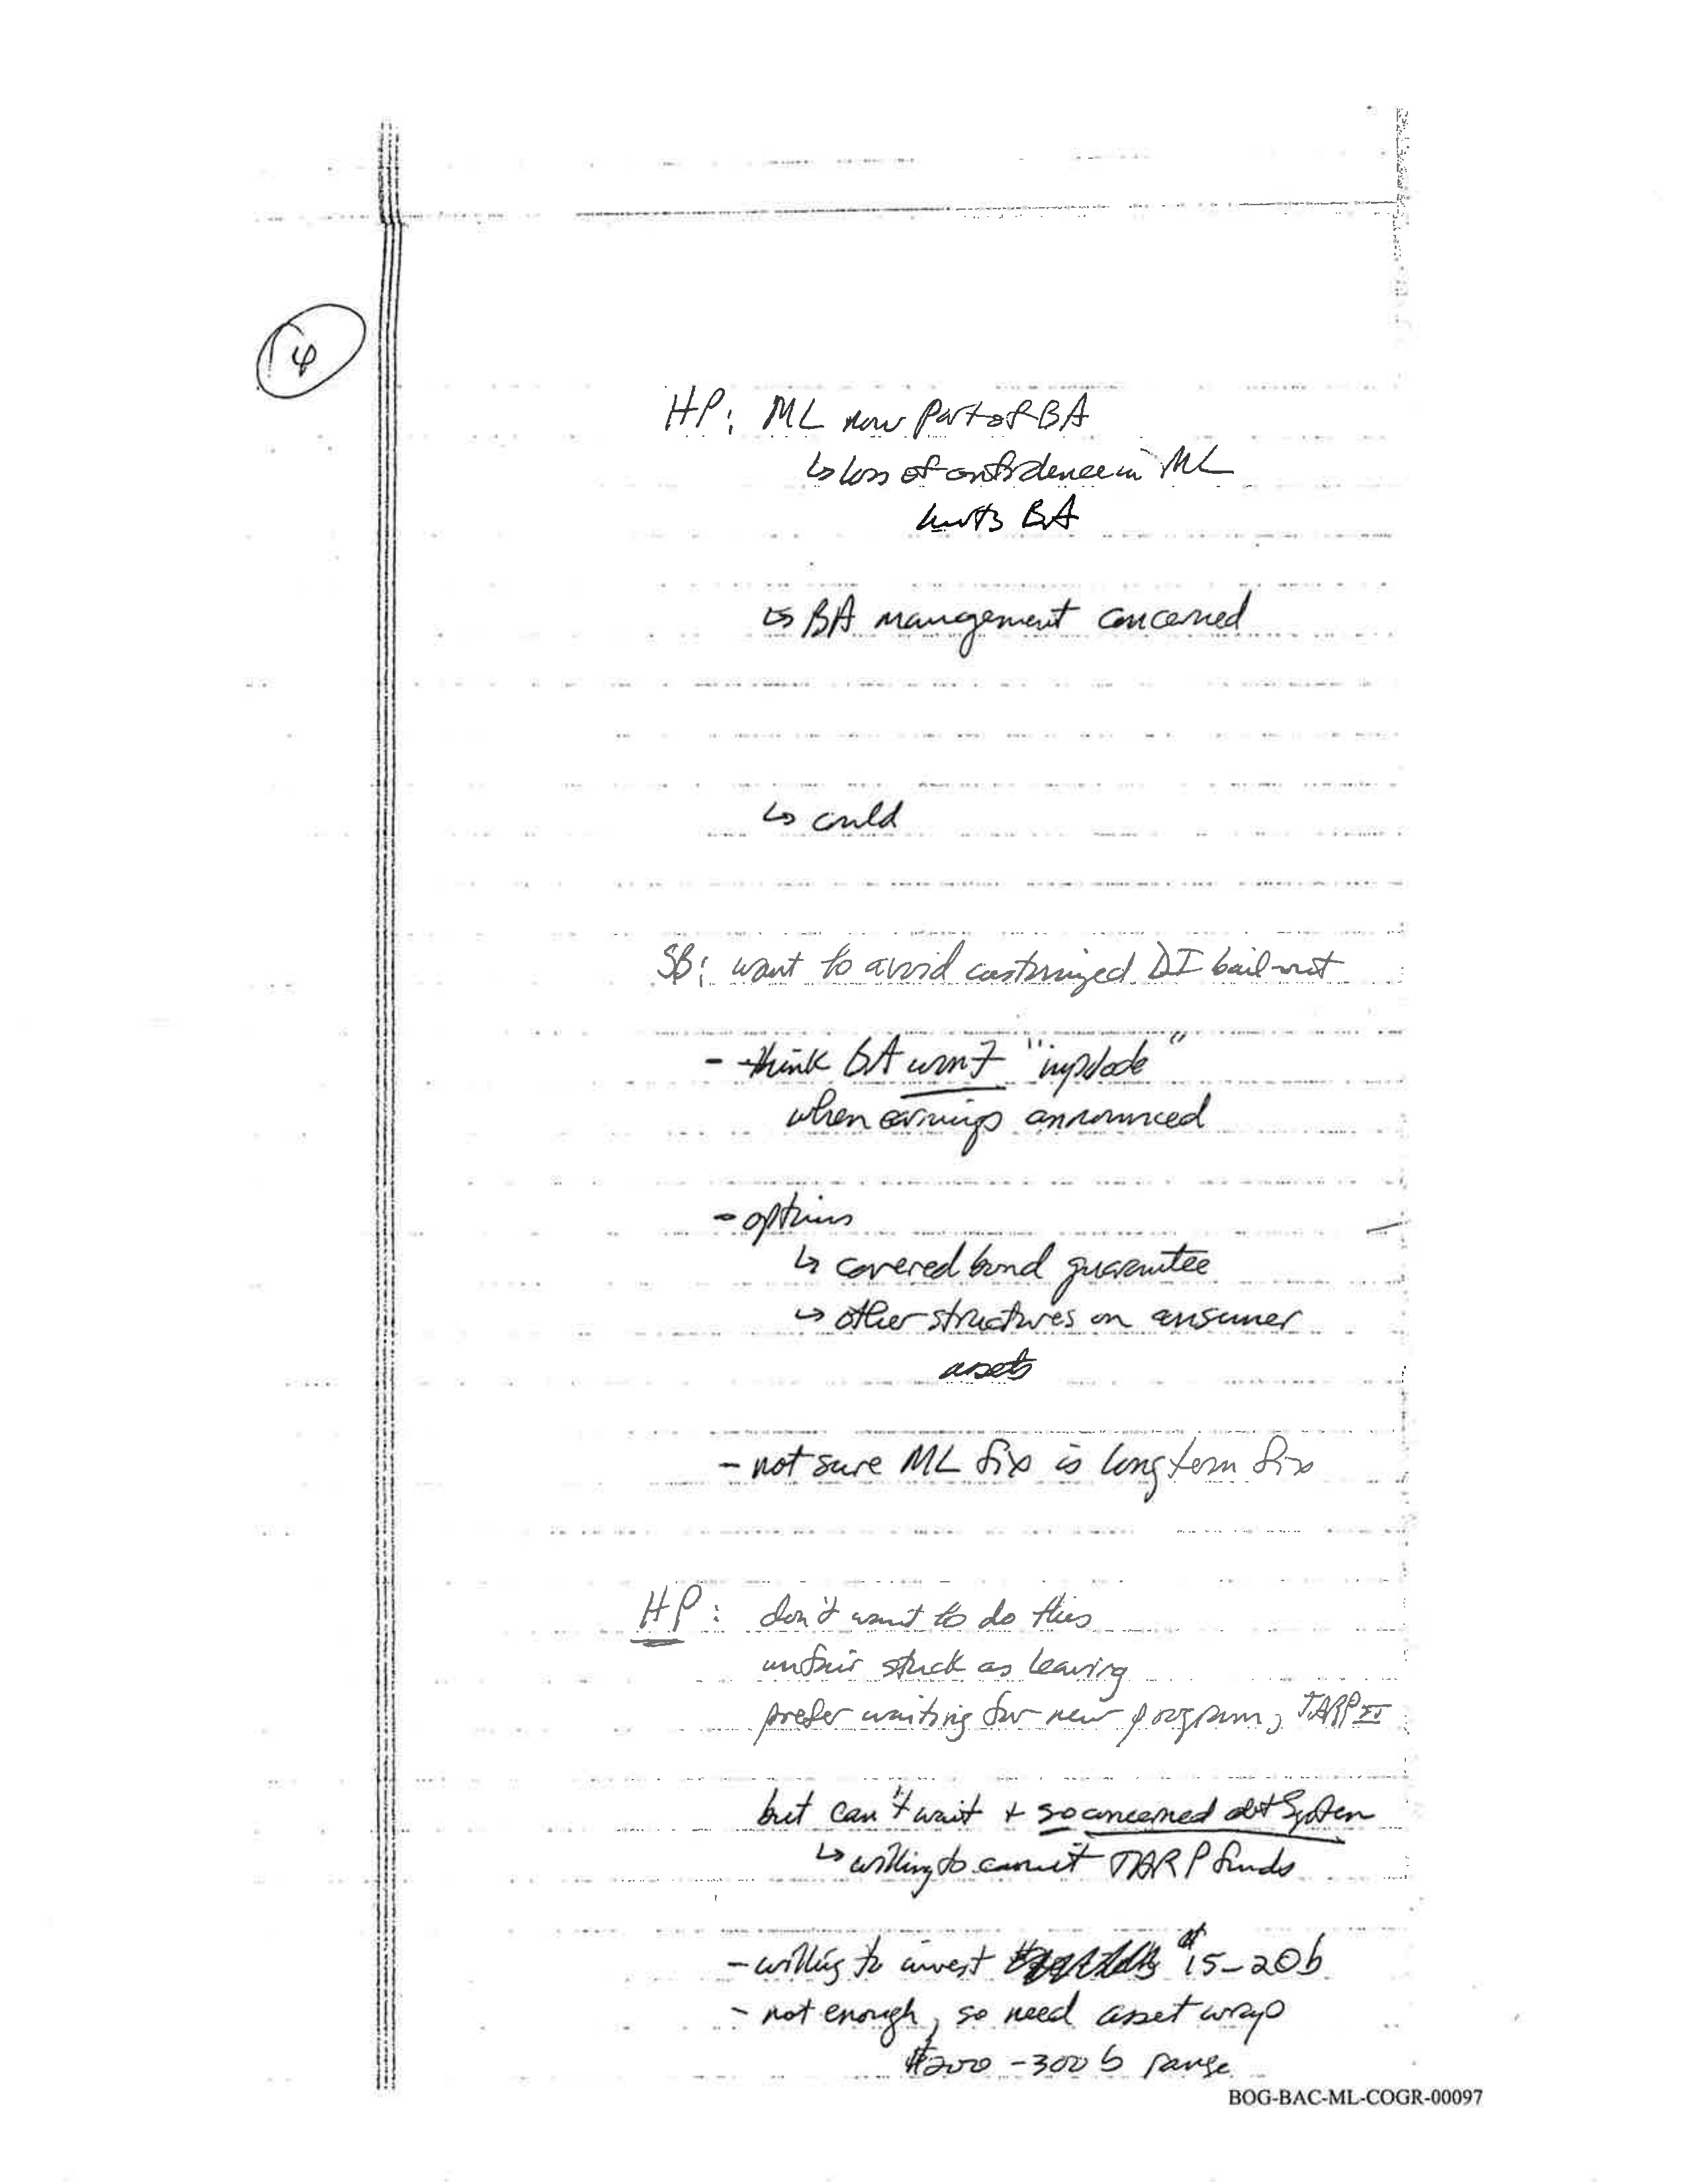 4
HP: ML now part of BA
↳ loss of confidence in ML
hurts BA
↳ BA management concerned
↳ could
SB: want to avoid customized DI bail-out
- think BA won't "implode"
when earnings announced
- options
↳ covered bond guarantee
↳ other structures on consumer
assets
- not sure ML fix is long term fix
HP: don't want to do this
unfair stuck as leaving
prefer waiting for new program, TARP II
but can't wait + so concerned abt System
↳ willing to commit TARP funds
- willing to invest $15-20b
- not enough, so need asset wrap
$200-300 b range
BOG-BAC-ML-COGR-00097